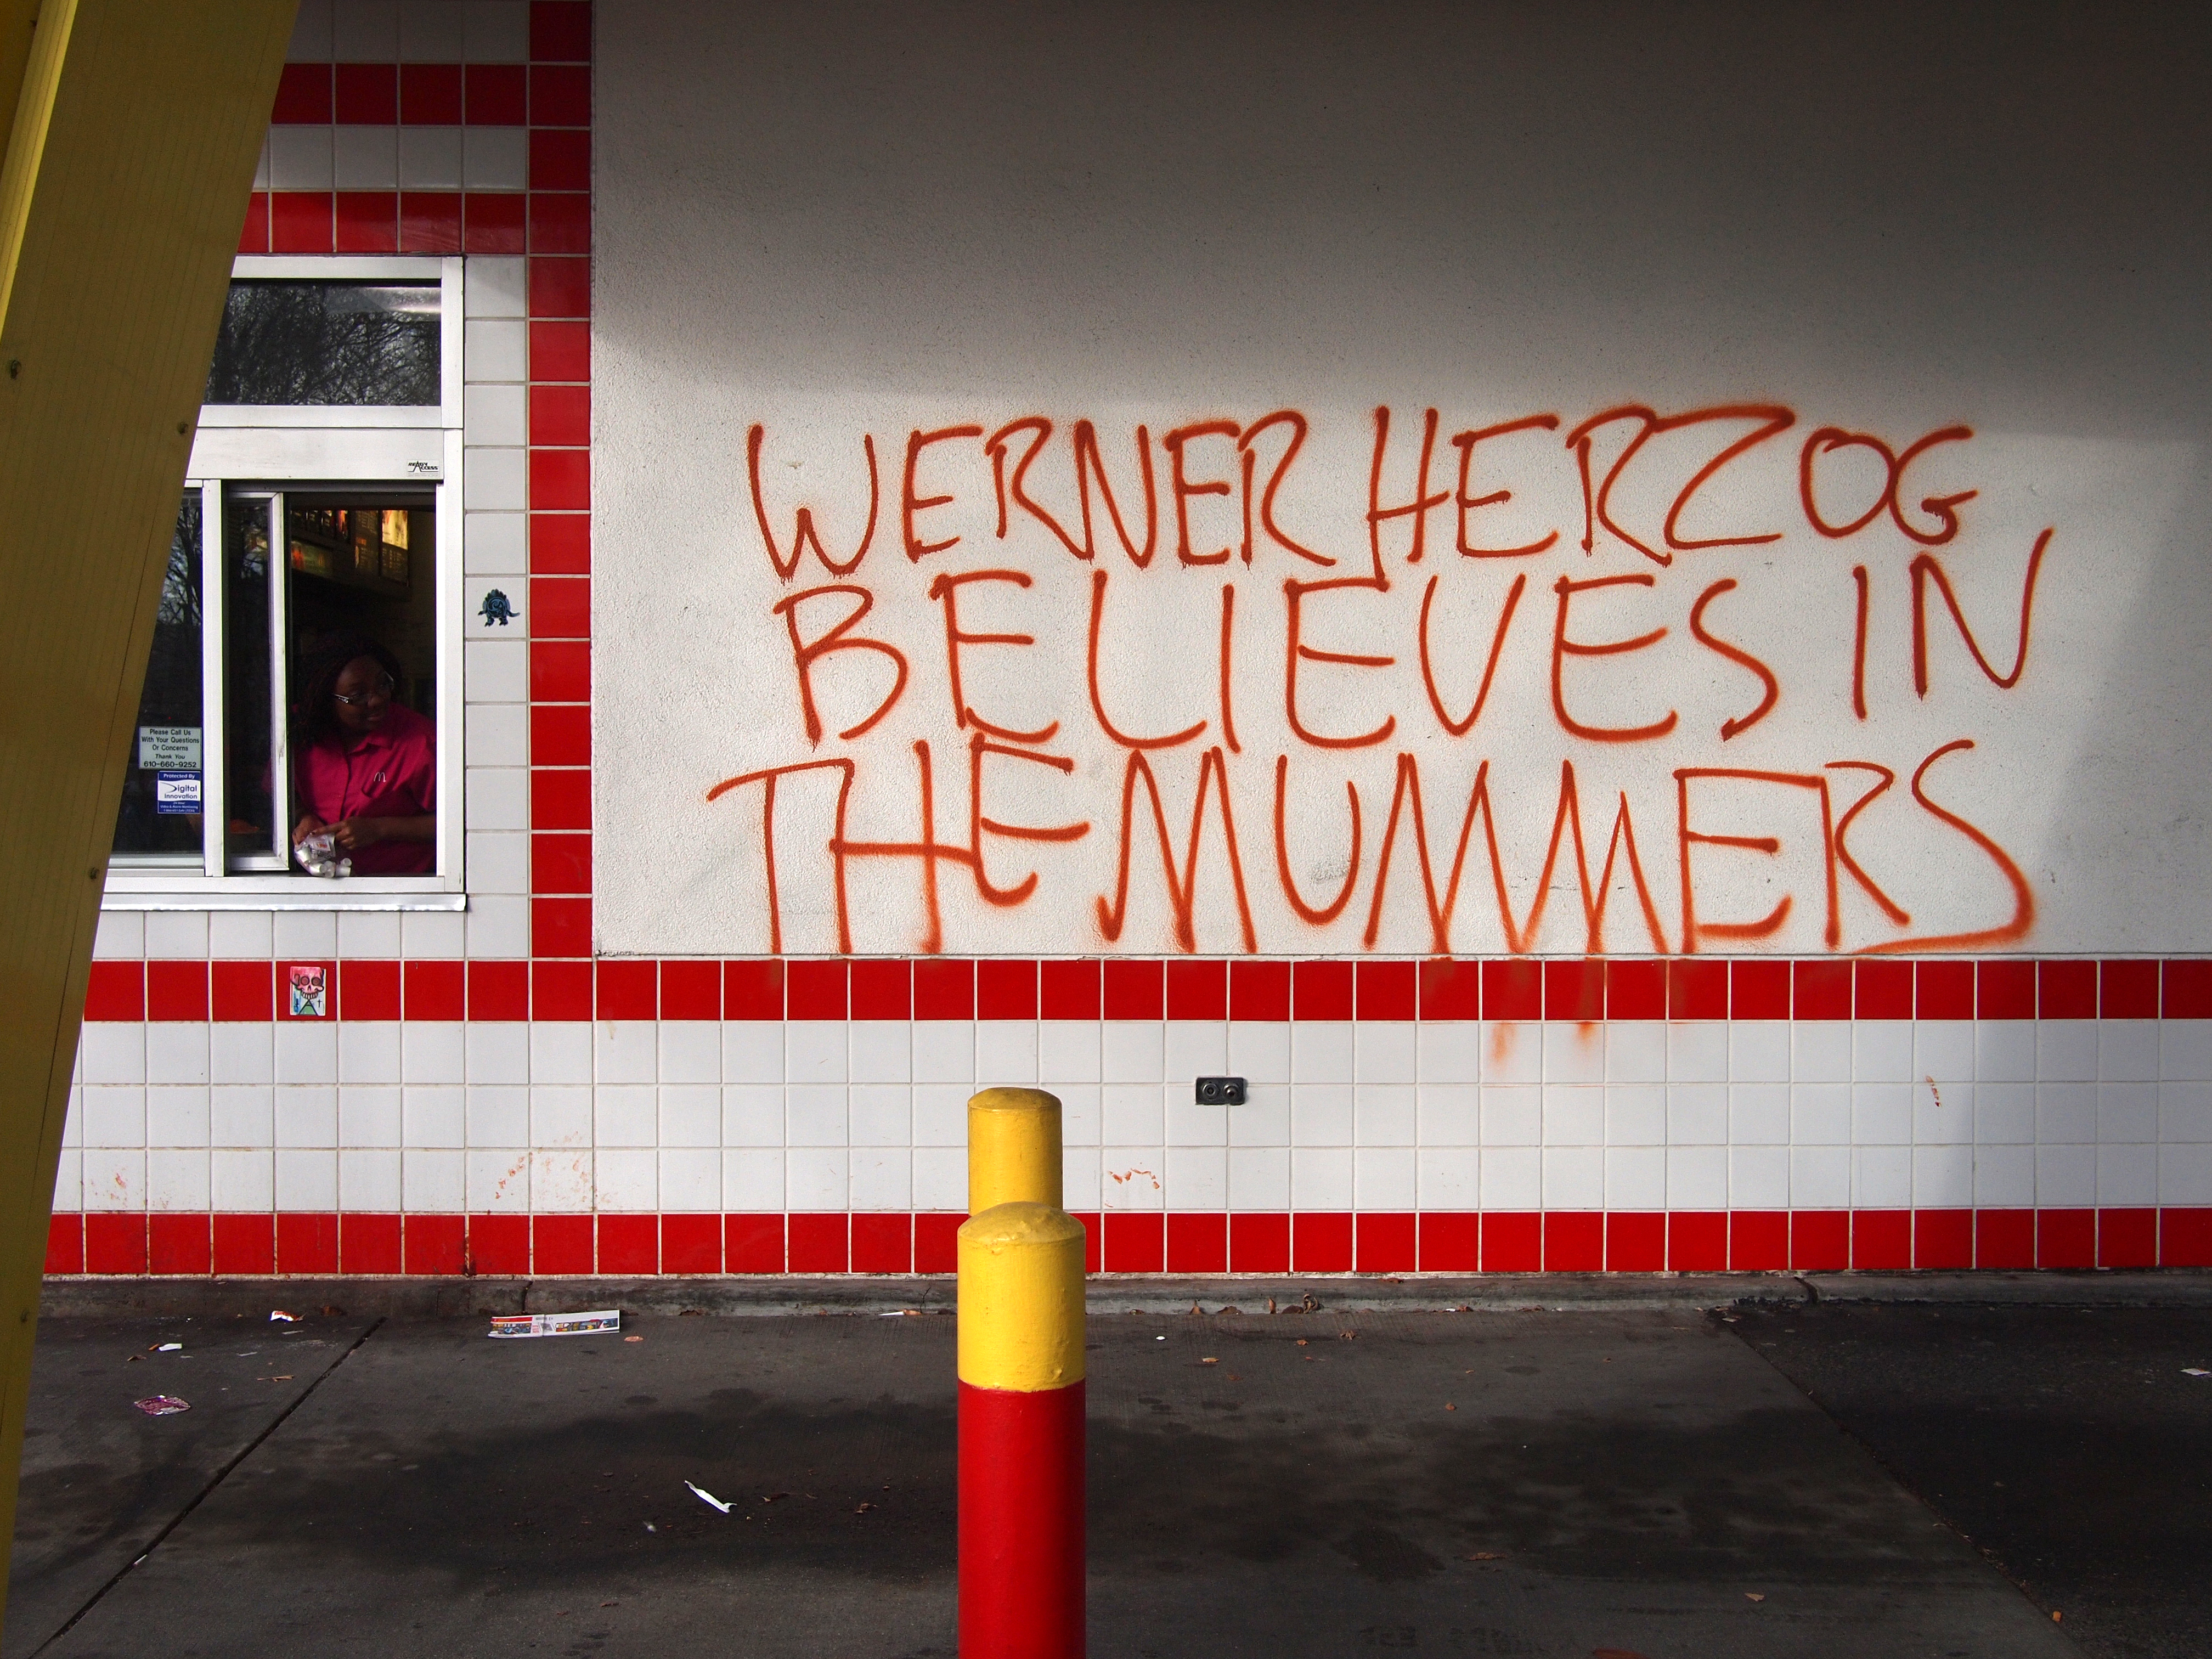 WERNER HERZOG
BELIEVES IN
THE MUMMERS
Please Call Us
With Your Questions
Or Concerns
Thank You
610-660-9252
Protected By
Digital
Innovation